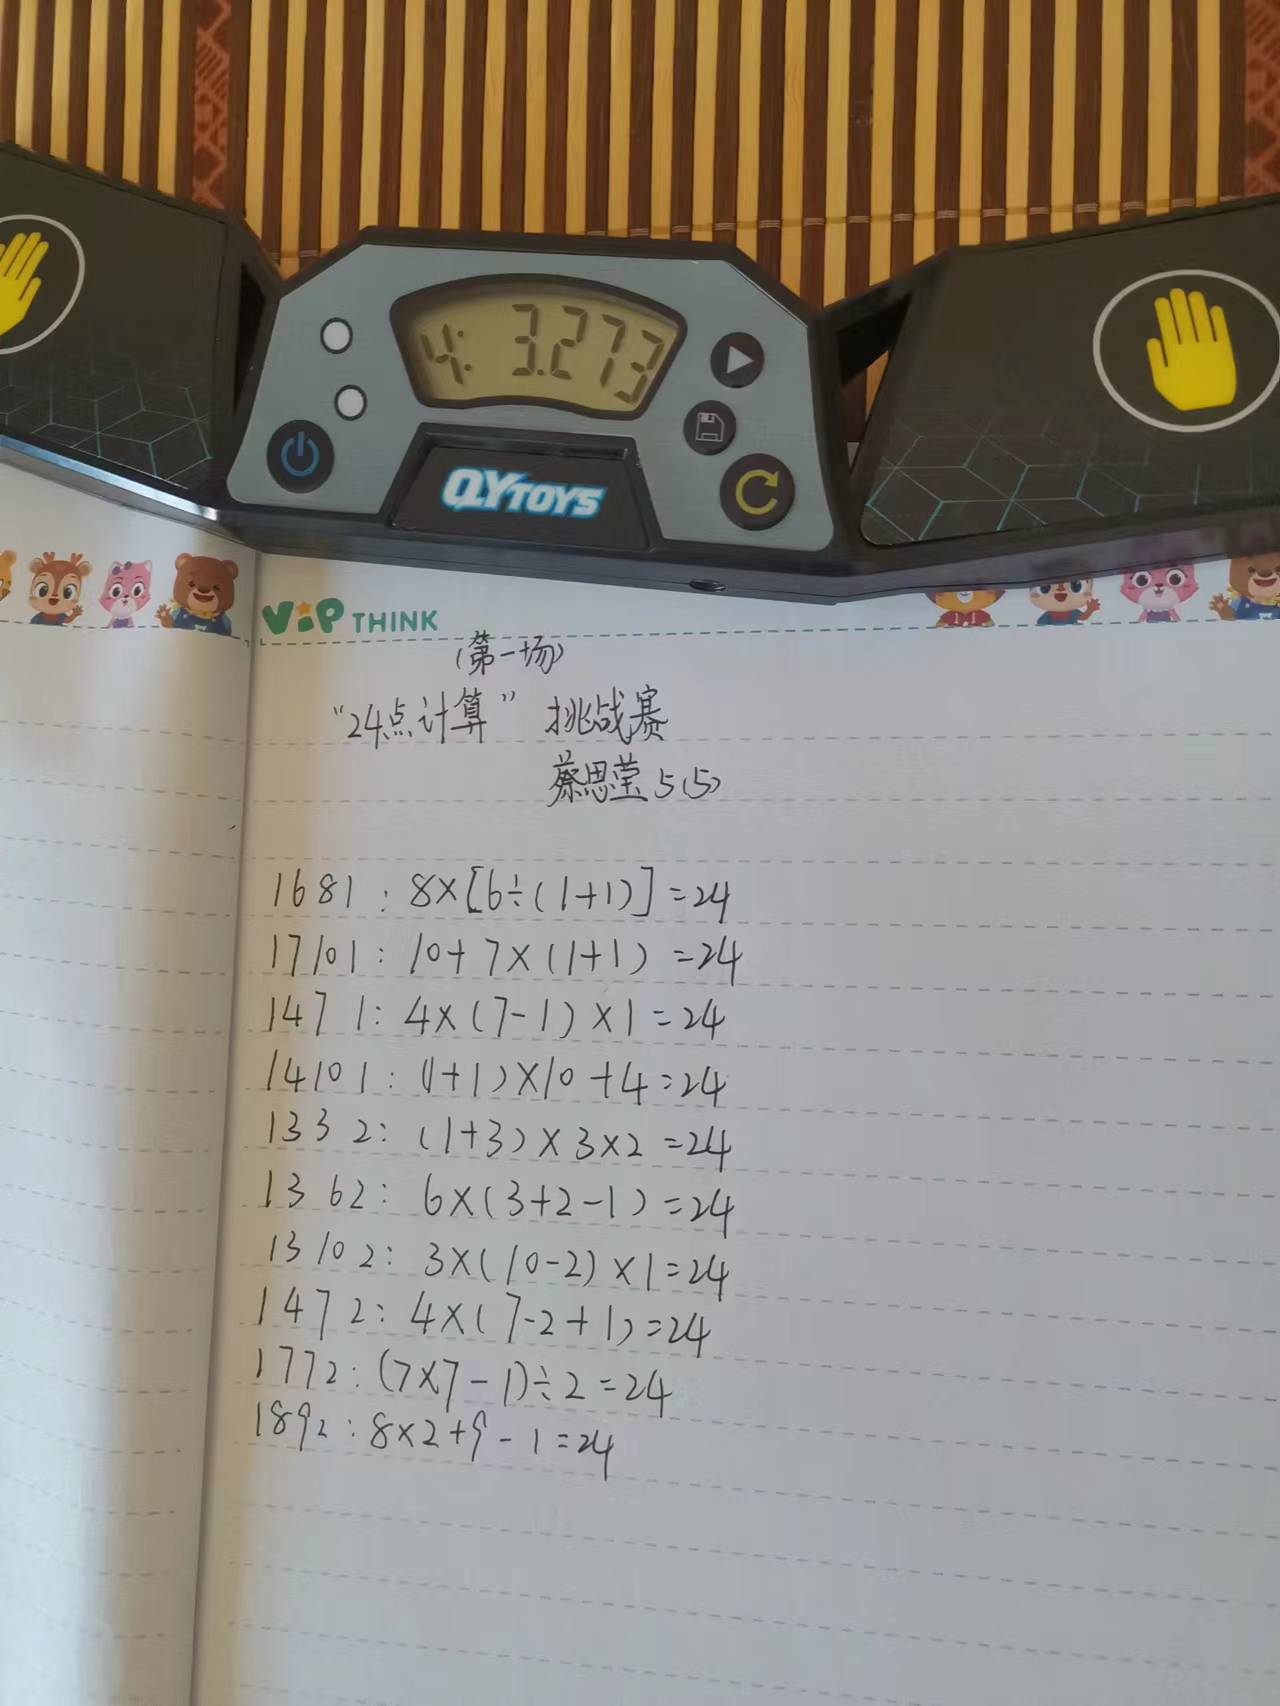 4: 3.273
QYTOYS
ViP THINK
(第一场)
“24点计算” 挑战赛
蔡思莹 5(5)
1 6 8 1 : 8×[6÷(1+1)]=24
1 7 10 1 : 10+7×(1+1)=24
1 4 7 1 : 4×(7-1)×1=24
1 4 10 1 : (1+1)×10+4=24
1 3 3 2 : (1+3)×3×2=24
1 3 6 2 : 6×(3+2-1)=24
1 3 10 2 : 3×(10-2)×1=24
1 4 7 2 : 4×(7-2+1)=24
1 7 7 2 : (7×7-1)÷2=24
1 8 9 2 : 8×2+9-1=24